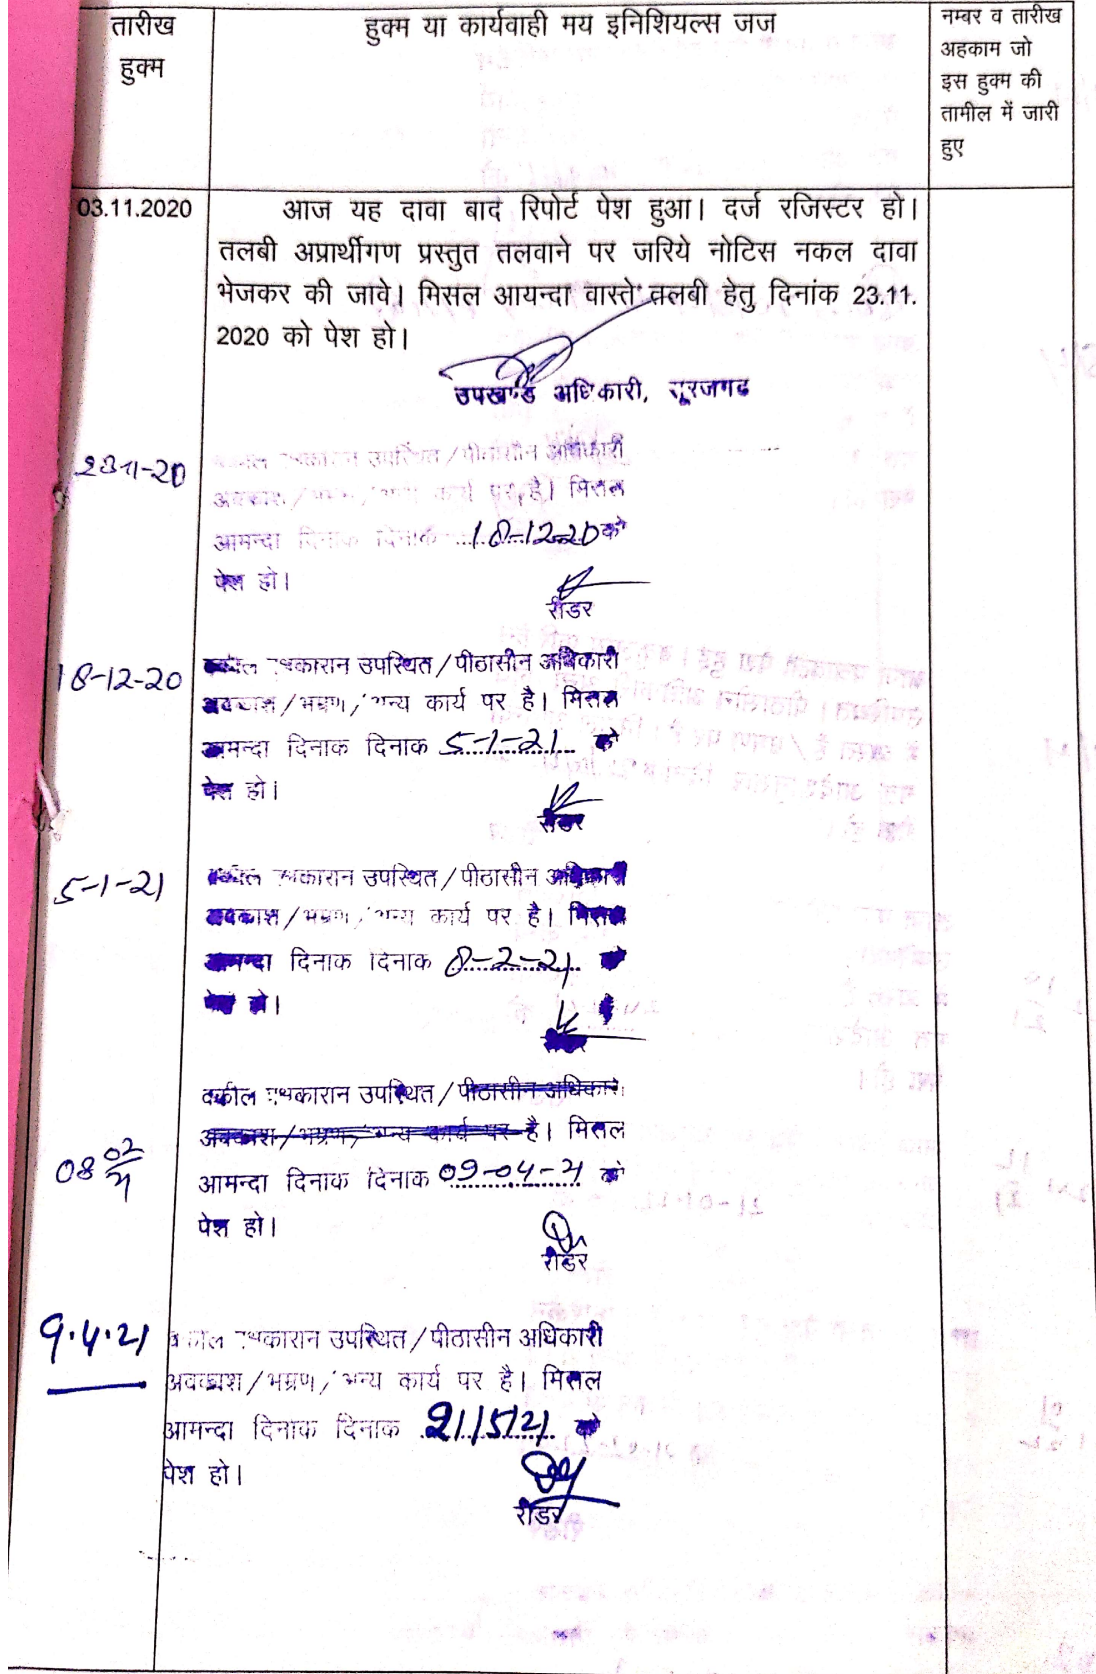 तारीख
हुक्म
हुक्म या कार्यवाही मय इनिशियल्स जज
नम्बर व तारीख
अहकाम जो
इस हुक्म की
तामील में जारी
हुए
03.11.2020
आज यह दावा बाद रिपोर्ट पेश हुआ। दर्ज रजिस्टर हो।
तलबी अप्रार्थीगण प्रस्तुत तलवाने पर जरिये नोटिस नकल दावा
भेजकर की जावे। मिसल आयन्दा वास्ते तलबी हेतु दिनांक 23.11.
2020 को पेश हो।
उपखण्ड अधिकारी, सूरजगढ
23-11-20
उपस्थित/पीठासीन अधिकारी
अवकाश/ कार्य पर है। मिसल
आमन्दा दिनाक दिनाक 18-12-20 को
पेश हो।
रीडर
18-12-20
वकील पक्षकारान उपस्थित/पीठासीन अधिकारी
अवकाश/भम्रण/अन्य कार्य पर है। मिसल
आमन्दा दिनाक दिनाक 5-1-21 को
पेश हो।
रीडर
5-1-21
वकील पक्षकारान उपस्थित/पीठासीन अधिकारी
अवकाश/भम्रण/अन्य कार्य पर है। मिसल
आमन्दा दिनाक दिनाक 8-2-21 को
पेश हो।
रीडर
वकील पक्षकारान उपस्थित/पीठासीन अधिकारी
अवकाश/भम्रण/अन्य कार्य पर है। मिसल
08 02/21
आमन्दा दिनाक दिनाक 09-04-21 को
पेश हो।
रीडर
9.4.21
वकील पक्षकारान उपस्थित/पीठासीन अधिकारी
अवकाश/भम्रण/अन्य कार्य पर है। मिसल
आमन्दा दिनाक दिनाक 21/5/21 को
पेश हो।
रीडर